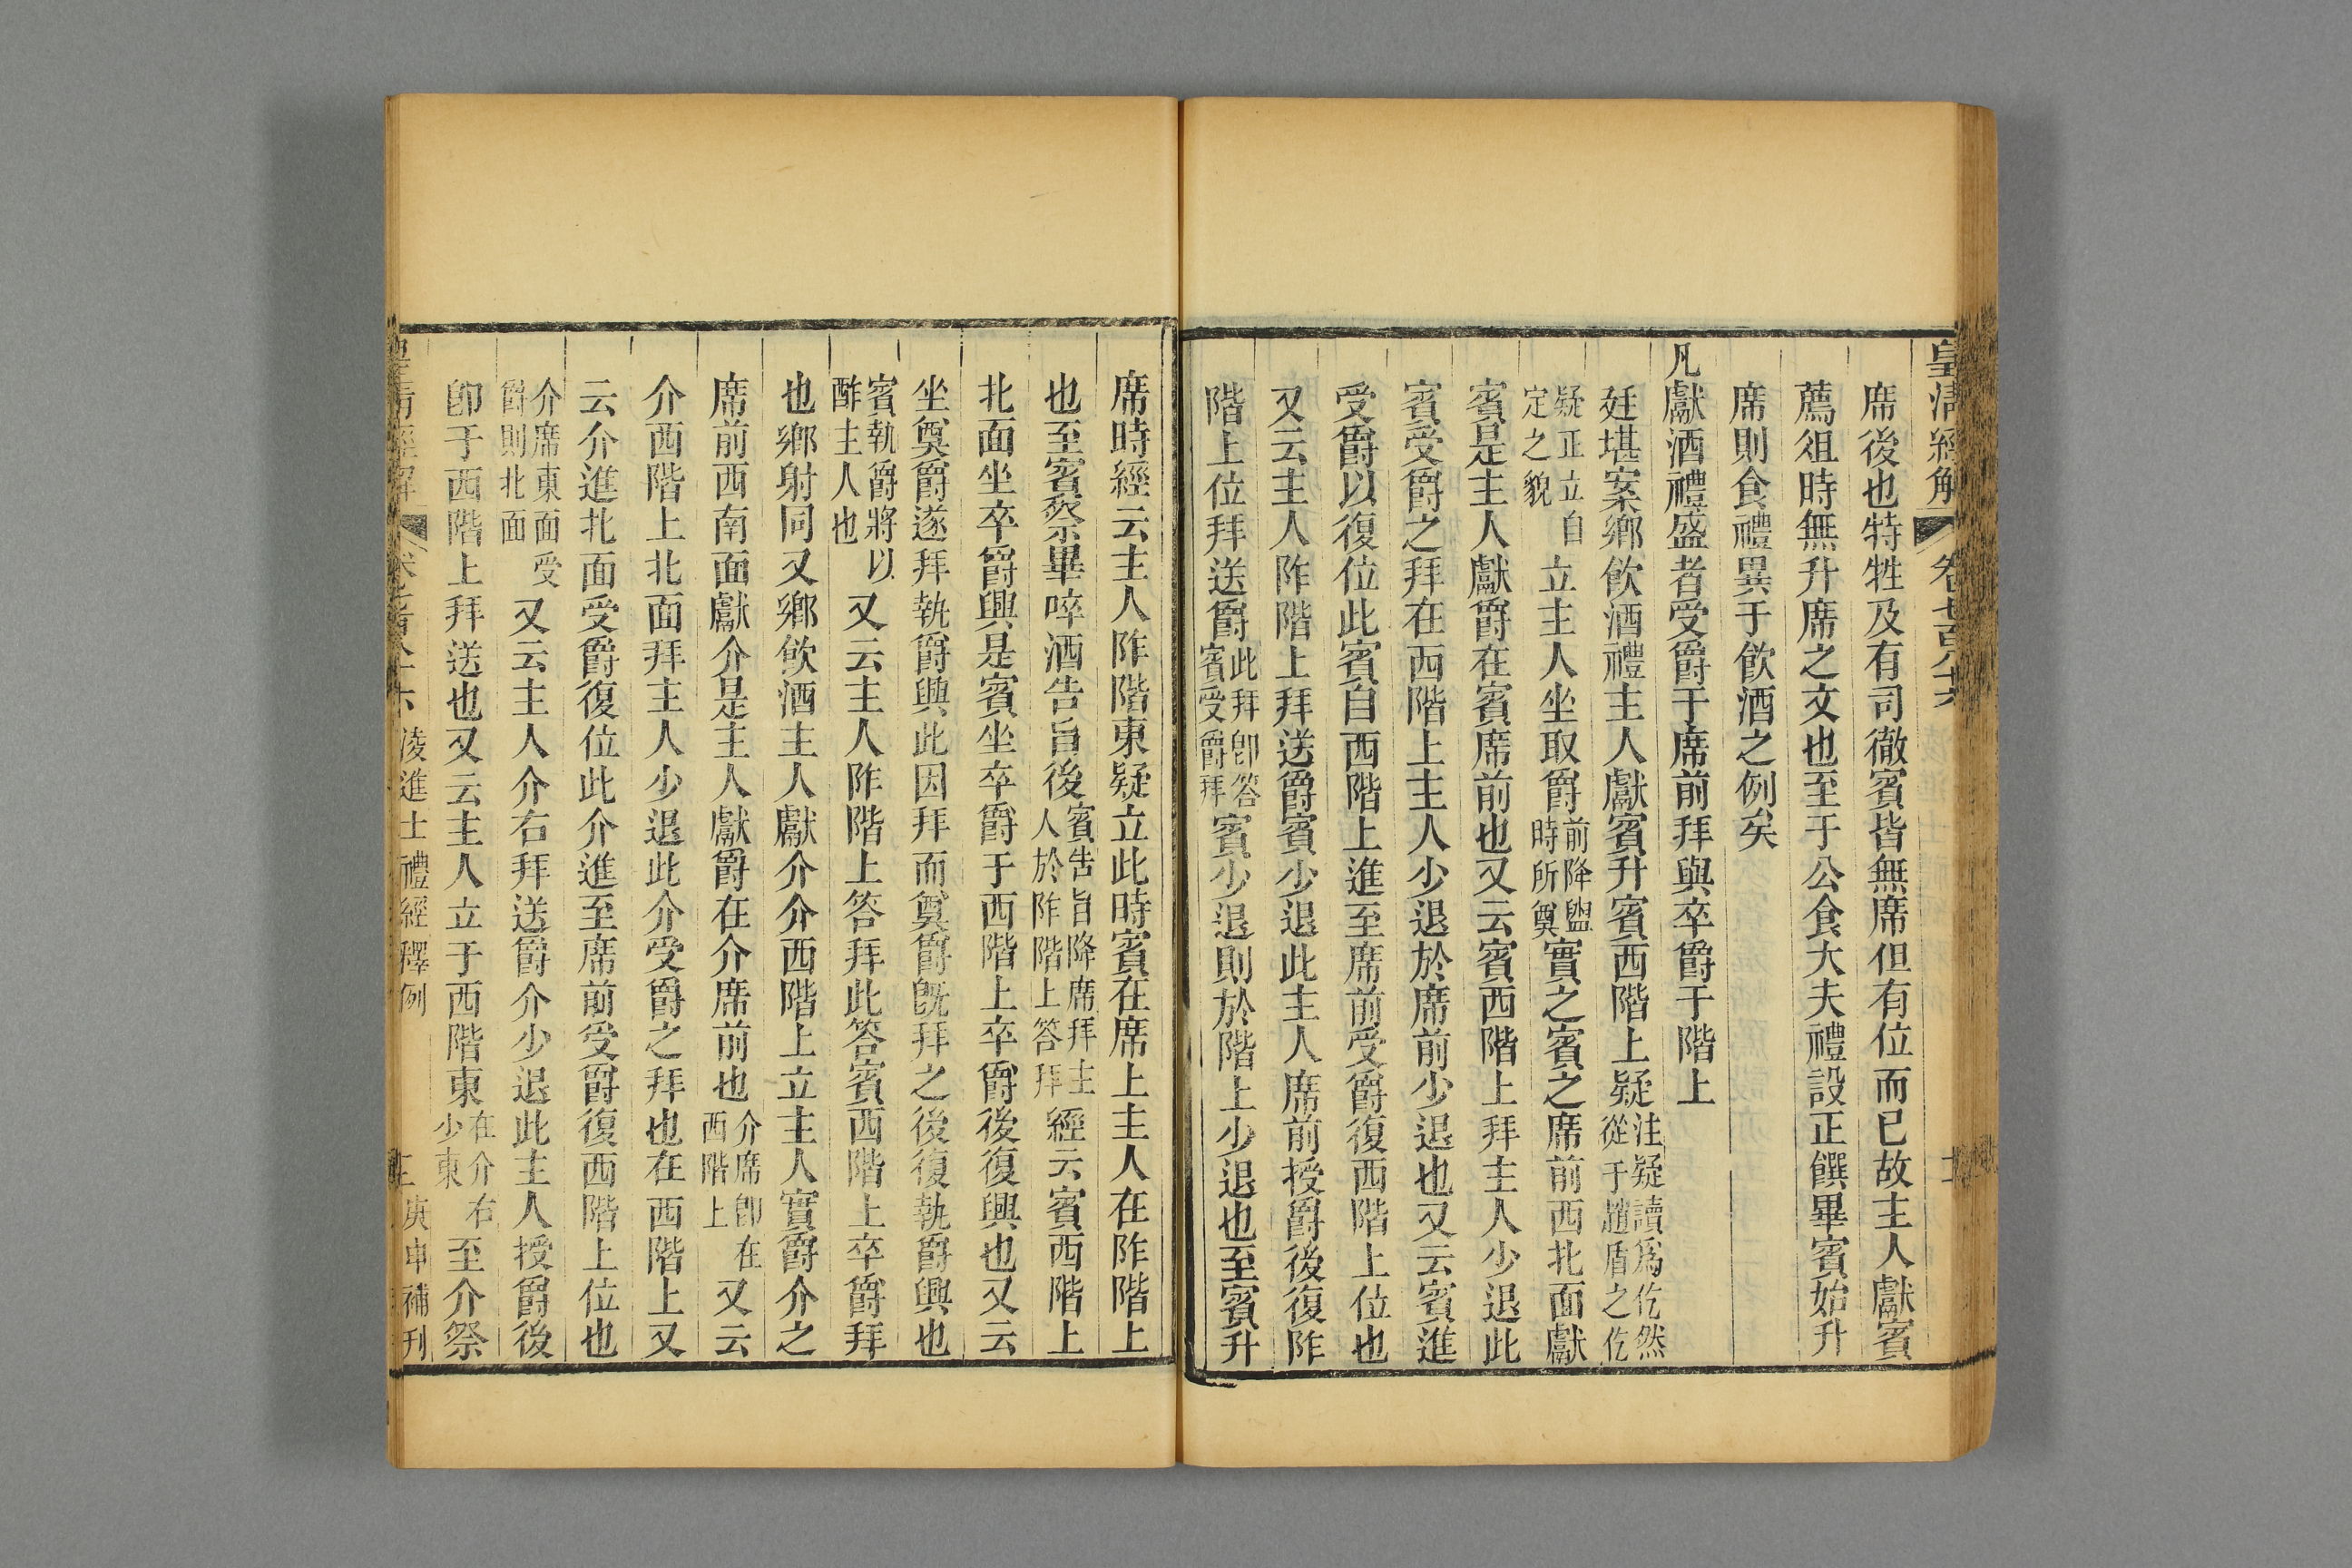 皇清經解 卷七百八十六
席後也特牲及有司徹賓皆無席但有位而已故主人獻賓
薦俎時無升席之文也至于公食大夫禮設正饌畢賓始升
席則食禮異于飮酒之例矣
凡獻酒禮盛者受爵于席前拜與卒爵于階上
廷堪案鄉飮酒禮主人獻賓升賓西階上疑注疑讀爲仡然從于趙盾之仡
疑正立自定之貌立主人坐取爵前降盥時所奠實之賓之席前西北面獻
賓是主人獻爵在賓席前也又云賓西階上拜主人少退此
賓受爵之拜在西階上主人少退於席前少退也又云賓進
受爵以復位此賓自西階上進至席前受爵復西階上位也
又云主人阼階上拜送爵賓少退此主人席前授爵後復阼
階上位拜送爵此拜卽答賓受爵拜賓少退則於階上少退也至賓升
席時經云主人阼階東疑立此時賓在席上主人在阼階上
也至賓祭畢啐酒告旨後賓告旨降席拜主人於阼階上答拜經云賓西階上
北面坐卒爵興是賓坐卒爵于西階上卒爵後復興也又云
坐奠爵遂拜執爵興此因拜而奠爵旣拜之後復執爵興也
賓執爵將以酢主人也又云主人阼階上答拜此答賓西階上卒爵拜
也鄉射同又鄉飮酒主人獻介介西階上立主人實爵介之
席前西南面獻介是主人獻爵在介席前也介席卽在西階上又云
介西階上北面拜主人少退此介受爵之拜也在西階上又
云介進北面受爵復位此介進至席前受爵復西階上位也
介席東面受爵則北面又云主人介右拜送爵介少退此主人授爵後
卽于西階上拜送也又云主人立于西階東在介右少東至介祭
皇清經解 卷七百八十六 凌進士禮經釋例 庚申補刊